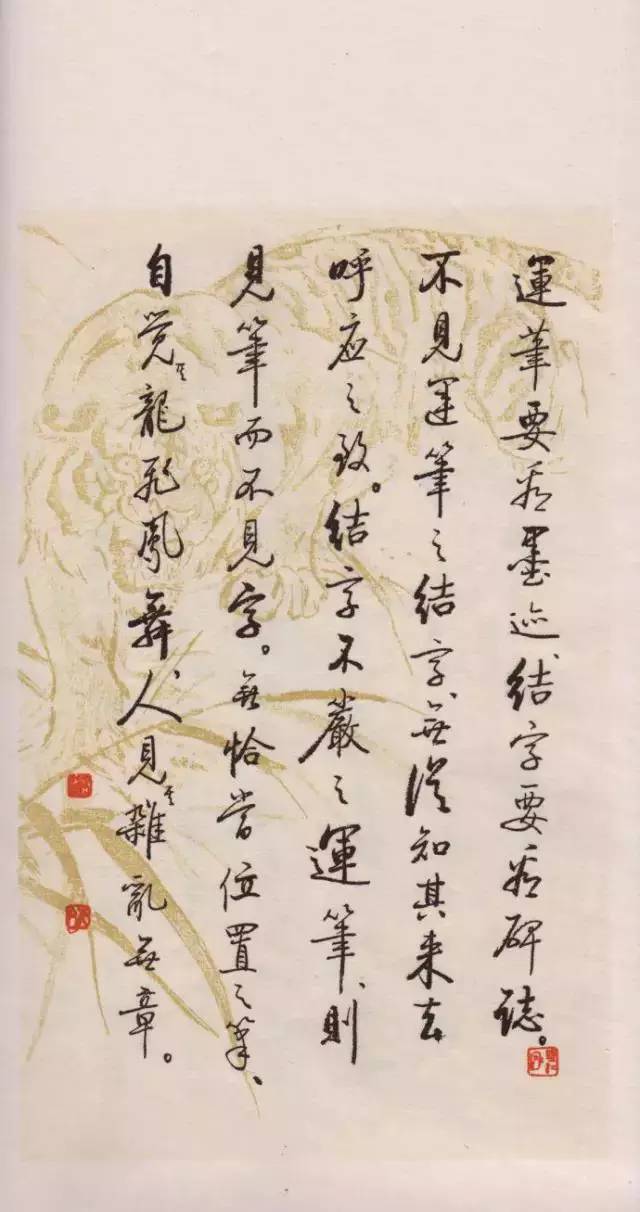 運筆要看墨迹、結字要看碑誌。
不見運筆之結字、無從知其来去
呼应之致。結字不嚴之運筆、則
見筆而不見字。無恰當位置之筆、
自覚其龍飛鳳舞、人見其雜亂無章。